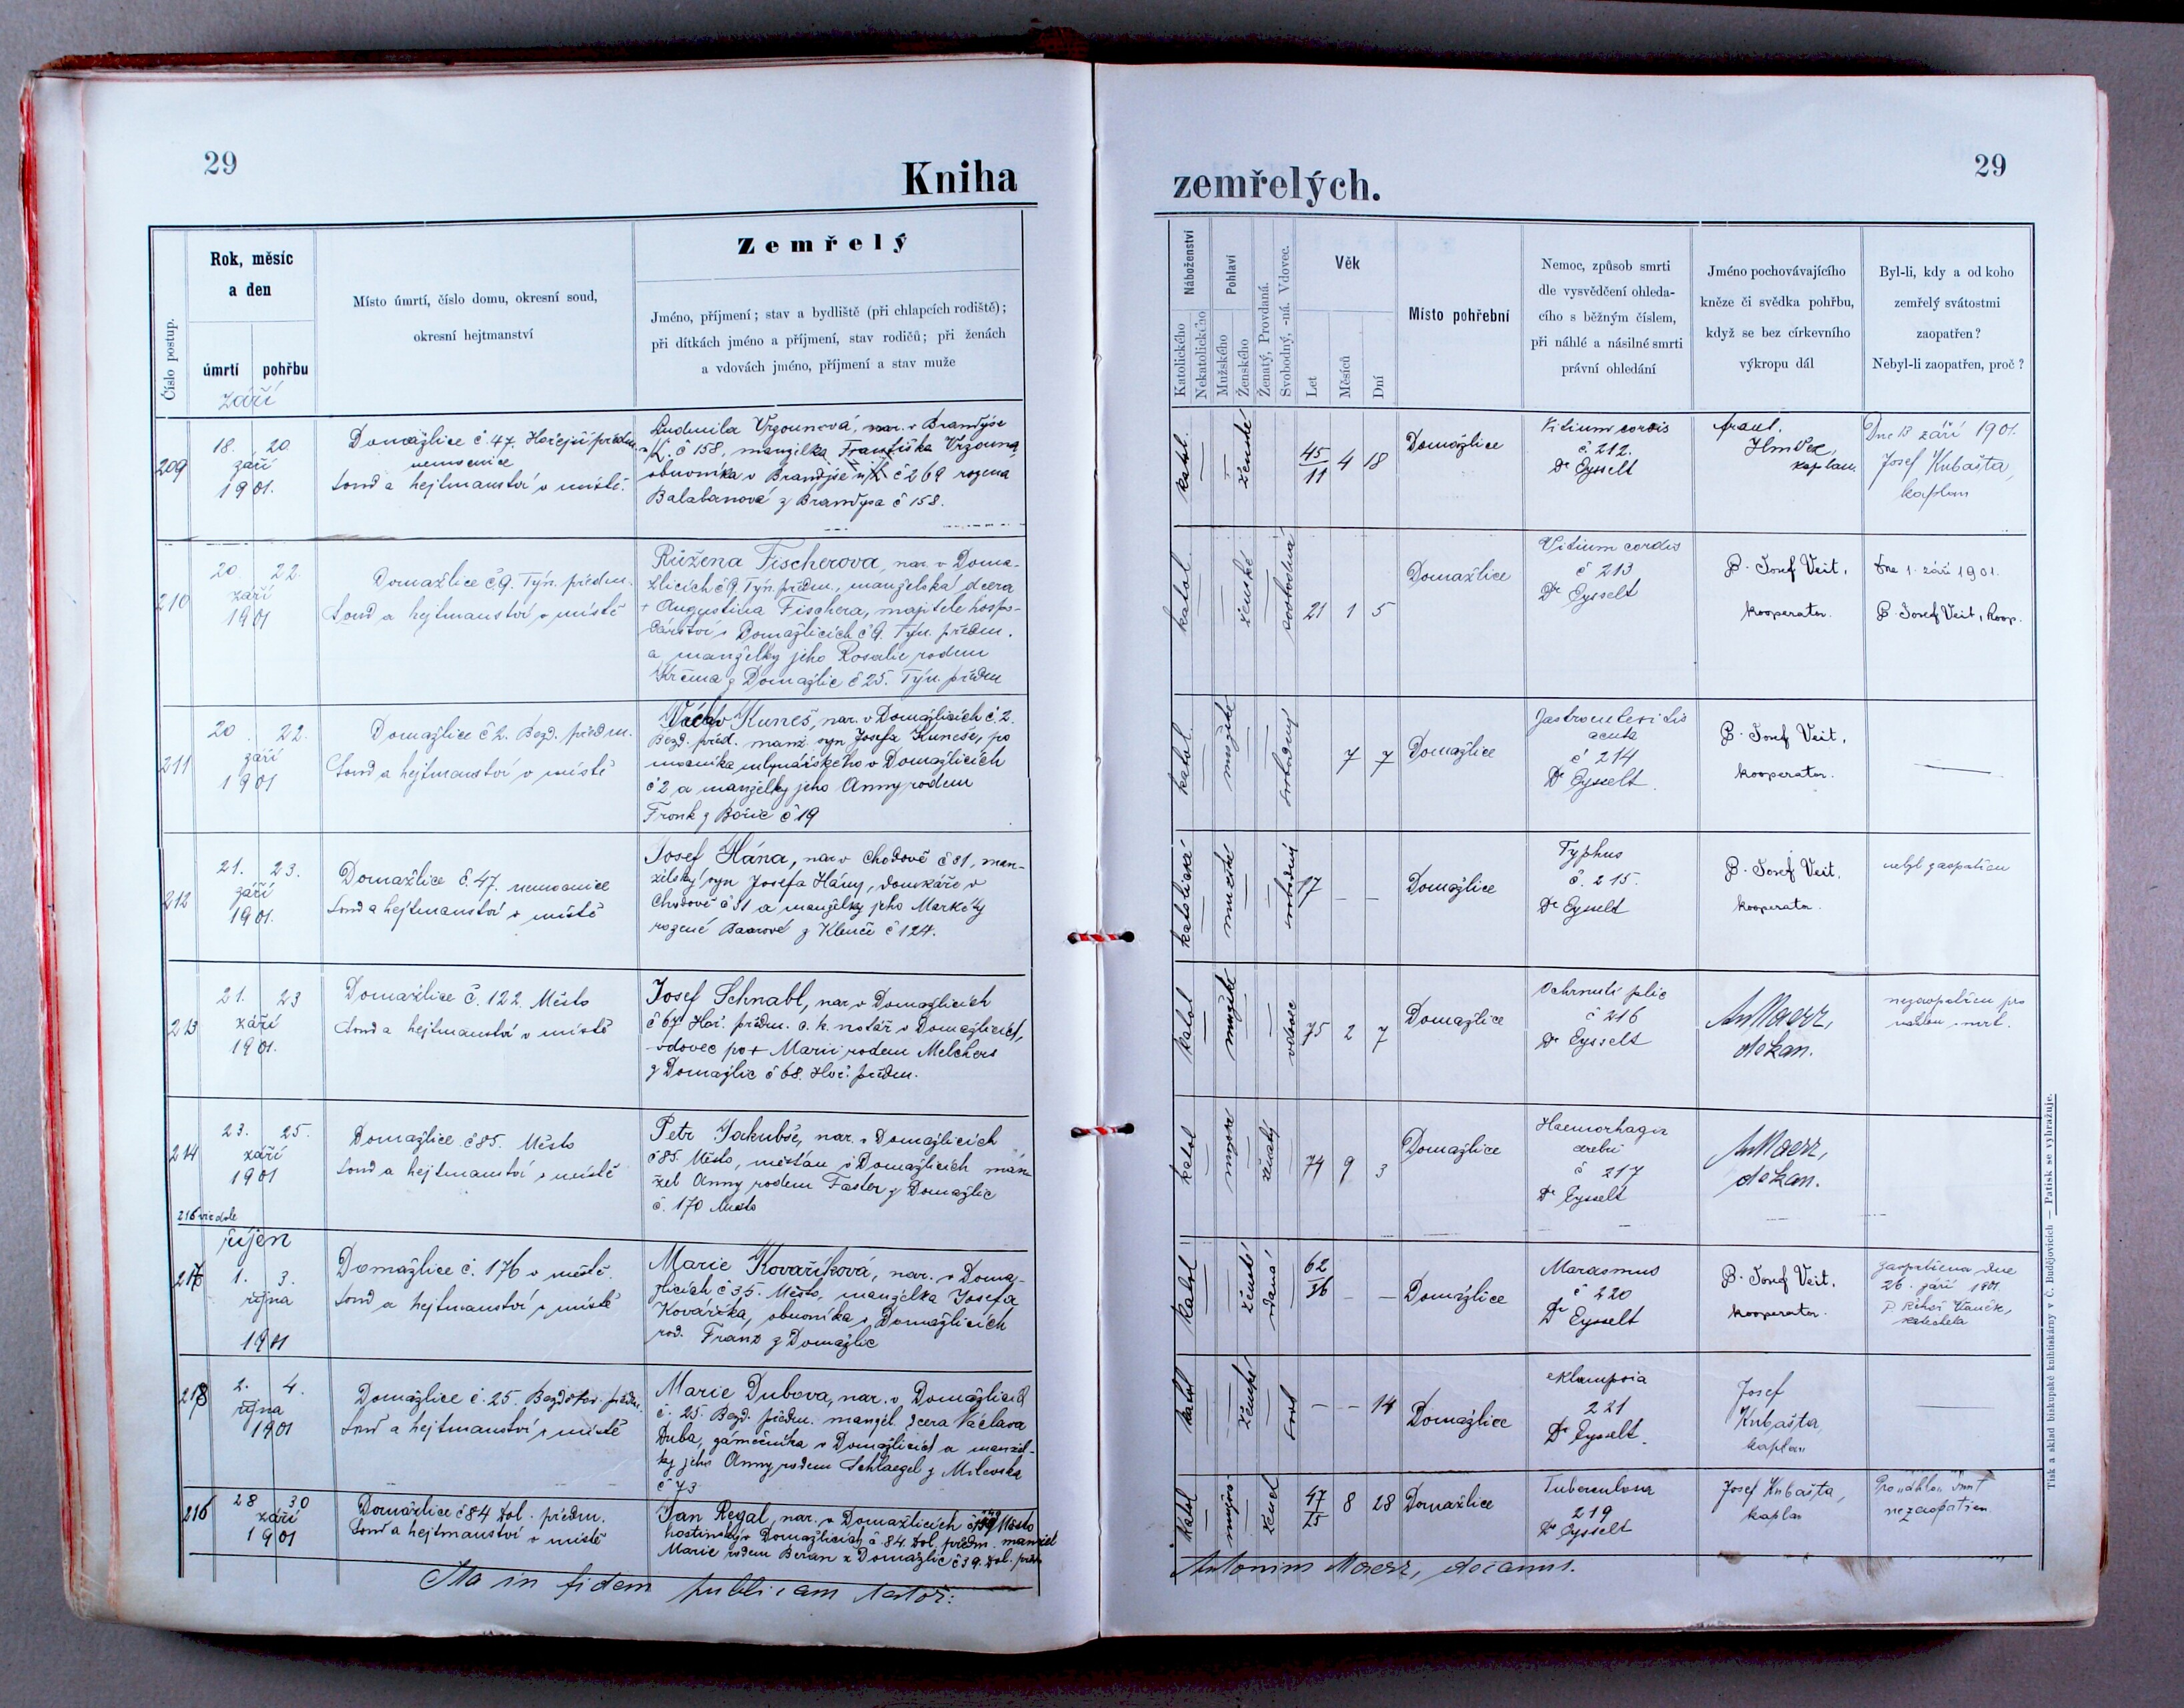 29
Kniha
zemřelých.
29
Číslo postup.
Rok, měsíc
a den
úmrtí
pohřbu
září
Místo úmrtí, číslo domu, okresní soud,
okresní hejtmanství
Zemřelý
Jméno, příjmení; stav a bydliště (při chlapcích rodiště);
při dítkách jméno a příjmení, stav rodičů; při ženách
a vdovách jméno, příjmení a stav muže
Náboženství
Katolického
Nekatolického
Pohlaví
Mužského
Ženského
Ženatý, Provdaná.
Svobodný, -ná. Vdovec.
Věk
Let
Měsíců
Dní
Místo pohřební
Nemoc, způsob smrti
dle vysvědčení ohleda-
cího s běžným číslem,
při náhlé a násilné smrti
právní ohledání
Jméno pochovávajícího
kněze či svědka pohřbu,
když se bez církevního
výkropu dál
Byl-li, kdy a od koho
zemřelý svátostmi
zaopatřen?
Nebyl-li zaopatřen, proč?
209
18. 20.
září
1901.
Domažlice č. 47. Hořejší předm.
nemocnice
Soud a hejtmanství v místě.
Ludmila Vrzounová, nar. v Brandýse
n/L. č 158, manželka Františka Vrzouna,
obuvníka v Brandýse n/L č 269 rozená
Balabanová z Brandýsa č 158.
katol.
ženské
45
11
4 18
Domažlice
Vitium cordis
č. 212.
Dr Eysselt
Frant.
kaplan.
Dne 13 září 1901.
Josef Kubašta,
kaplan
210
20. 22.
září
1901
Domažlice č 9. Týn. předm.
Soud a hejtmanství v místě
Růžena Fischerova, nar. v Doma-
žlicích č 9. Týn. předm., manželská dcera
+ Augustina Fischera, majitele hospo-
dářství v Domažlicích č 9. Týn. předm.
a manželky jeho Rosalie rodem
z Domažlic č 25. Týn. předm
katol
ženské
svobodná
21 1 5
Domažlice
Vitium cordis
č 213
Dr Eysselt
P. Josef Veit,
kooperator.
Dne 1. září 1901.
P. Josef Veit, koop.
211
20. 22.
září
1901
Domažlice č 2. Bezd. předm.
Soud a hejtmanství v místě
Václav Kuneš, nar. v Domažlicích č. 2.
Bezd. před. manž. syn Josefa Kuneše, po
mocníka mlynářského v Domažlicích
č 2 a manželky jeho Anny rodem
Fronk z Bořic č 19
katol.
mužské
svobodný
7 7
Domažlice
Gastroenteritis
acuta
č 214
Dr Eysselt.
P. Josef Veit,
kooperator.
212
21. 23.
září
1901.
Domažlice č. 47. nemocnice
Soud a hejtmanství v místě
Josef Hána, nar v Chodově č 31, man-
želský syn Josefa Hány, domkáře v
Chodově č 31 a manželky jeho Markéty
rozené Baarové z Klenče č 124.
katolické
mužské
svobodný
17 – –
Domažlice
Typhus
č. 215.
Dr Eysselt
P. Josef Veit,
kooperator.
nebyl zaopatřen
213
21. 23
září
1901.
Domažlice č. 122. Město
Soud a hejtmanství v místě
Josef Schnabl, nar. v Domažlicích
č 67 Hoř. předm. c. k. notář v Domažlicích,
vdovec po + Marii rodem Melchers
z Domažlic č 68. Hoř. předm.
katol
mužské
vdovec
75 2 7
Domažlice
Ochrnutí plic
č 216
Dr Eysselt
AntMaerz,
děkan.
nezaopatřen pro
náhlou smrt.
214
23. 25.
září
1901
Domažlice č 85. Město
Soud a hejtmanství v místě
Petr Jakubše, nar. v Domažlicích
č 85. Město, měšťan v Domažlicích man
žel Anny rodem Faster z Domažlic
č. 170 Město
katol
mužské
ženatý
74 9 3
Domažlice
Haemorhagia
cerebri
č 217
Dr Eysselt
AntMaerz,
děkan.
216 viz dole
říjen
1. 3.
října
1901
Domažlice č. 176 v městě.
Soud a hejtmanství v místě
Marie Kovaříková, nar. v Doma-
žlicích č 35. Město, manželka Josefa
Kováříka, obuvníka v Domažlicích
rod. Franz z Domažlic
katol
ženské
vdaná
62
36
– –
Domažlice
Marasmus
č 220
Dr Eysselt
P. Josef Veit,
kooperator.
zaopatřena dne
26. září 1901.
P. Řehoř Vaněk,
katecheta
218
2. 4.
října
1901
Domažlice č. 25. Bezděkov. předm.
Soud a hejtmanství v místě
Marie Dubova, nar. v Domažlicích
č. 25. Bezd. předm. manžel. dcera Václava
Duba, zámečníka v Domažlicích a manžel-
ky jeho Anny, rodem Schlaegel z Milevska
č 73
katol
ženské
svob
– – 14
Domažlice
eklampsia
221
Dr Eysselt.
Josef
Kubašta,
kaplan
216
28 30
září
1901
Domažlice č 84 Dol. předm.
Soud a hejtmanství v místě
Jan Regal, nar. v Domažlicích Město
hostinský v Domažlicích č 84. Dol. předm. manžel
Marie rodem Beran z Domažlic č 39. Dol. předm
katol
mužské
47
8 28
Domažlice
Tuberculosa
219
Dr Eysselt
Josef Kubašta,
kaplan
Pro náhlou smrt
nezaopatřen
Ita in fidem publicam testor:
Antonius Maerz, decanus.
Tisk a sklad biskupské knihtiskárny v Č. Budějovicích — Patisk se vyhražuje.